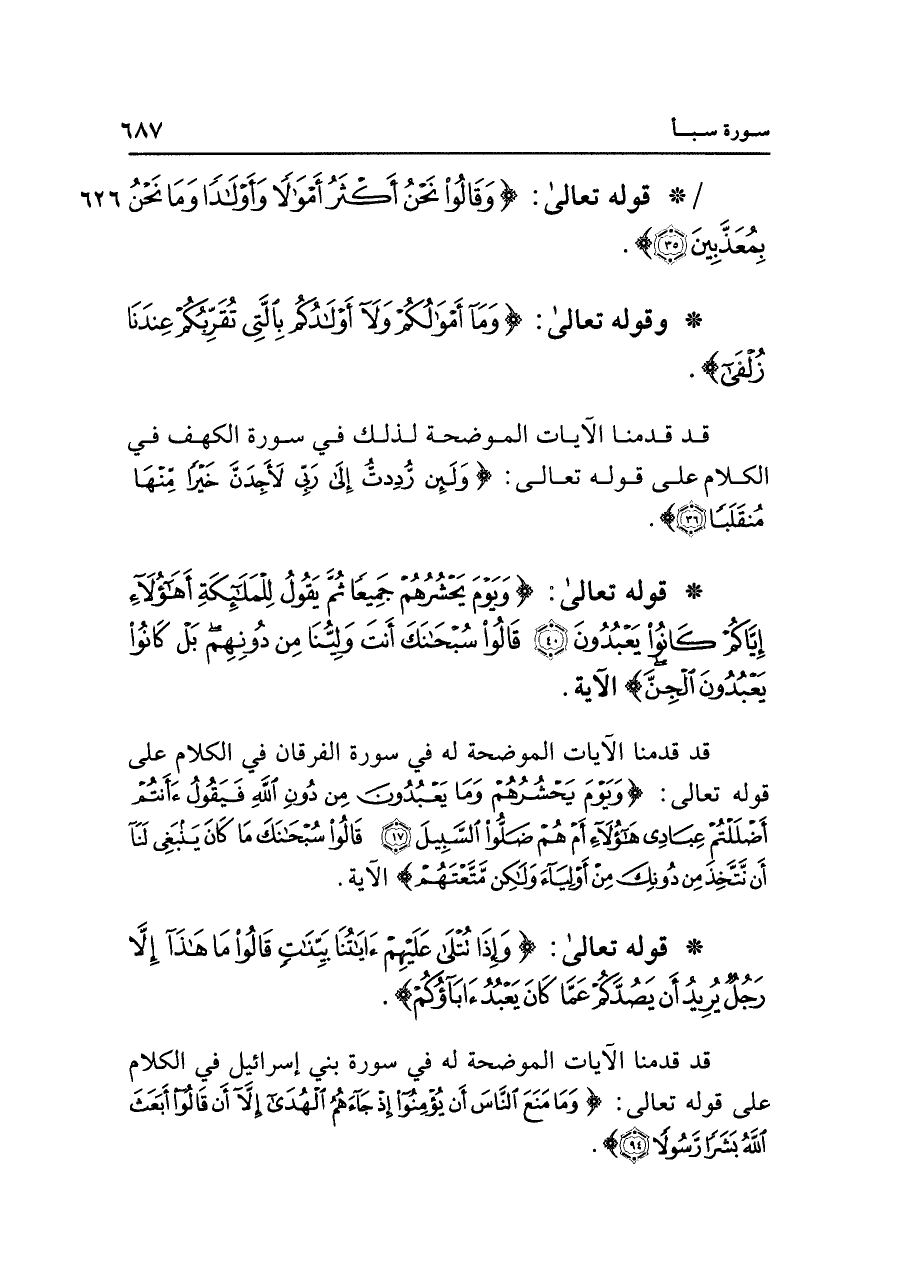 سورة سبأ ٦٨٧
/ * قوله تعالىٰ: ﴿ وَقَالُوا۟ نَحْنُ أَكْثَرُ أَمْوَٰلًا وَأَوْلَٰدًا وَمَا نَحْنُ ٦٢٦
بِمُعَذَّبِينَ ﴿٣٥﴾﴾ .
* وقوله تعالىٰ: ﴿ وَمَآ أَمْوَٰلُكُمْ وَلَآ أَوْلَٰدُكُم بِٱلَّتِى تُقَرِّبُكُمْ عِندَنَا
زُلْفَىٰٓ﴾ .
قد قدمنا الآيات الموضحة لذلك في سورة الكهف في
الكلام على قوله تعالى: ﴿ وَلَئِن رُّدِدتُّ إِلَىٰ رَبِّى لَأَجِدَنَّ خَيْرًا مِّنْهَا
مُنقَلَبًا ﴿٣٦﴾﴾ .
* قوله تعالىٰ: ﴿ وَيَوْمَ يَحْشُرُهُمْ جَمِيعًا ثُمَّ يَقُولُ لِلْمَلَٰٓئِكَةِ أَهَٰٓؤُلَآءِ
إِيَّاكُمْ كَانُوا۟ يَعْبُدُونَ ﴿٤٠﴾ قَالُوا۟ سُبْحَٰنَكَ أَنتَ وَلِيُّنَا مِن دُونِهِم ۖ بَلْ كَانُوا۟
يَعْبُدُونَ ٱلْجِنَّ ۖ﴾ الآية .
قد قدمنا الآيات الموضحة له في سورة الفرقان في الكلام على
قوله تعالى: ﴿ وَيَوْمَ يَحْشُرُهُمْ وَمَا يَعْبُدُونَ مِن دُونِ ٱللَّهِ فَيَقُولُ ءَأَنتُمْ
أَضْلَلْتُمْ عِبَادِى هَٰٓؤُلَآءِ أَمْ هُمْ ضَلُّوا۟ ٱلسَّبِيلَ ﴿١٧﴾ قَالُوا۟ سُبْحَٰنَكَ مَا كَانَ يَنۢبَغِى لَنَآ
أَن نَّتَّخِذَ مِن دُونِكَ مِنْ أَوْلِيَآءَ وَلَٰكِن مَّتَّعْتَهُمْ ﴾ الآية .
* قوله تعالىٰ: ﴿ وَإِذَا تُتْلَىٰ عَلَيْهِمْ ءَايَٰتُنَا بَيِّنَٰتٍ قَالُوا۟ مَا هَٰذَآ إِلَّا
رَجُلٌ يُرِيدُ أَن يَصُدَّكُمْ عَمَّا كَانَ يَعْبُدُ ءَابَآؤُكُمْ﴾ .
قد قدمنا الآيات الموضحة له في سورة بني إسرائيل في الكلام
على قوله تعالى: ﴿ وَمَا مَنَعَ ٱلنَّاسَ أَن يُؤْمِنُوٓا۟ إِذْ جَآءَهُمُ ٱلْهُدَىٰٓ إِلَّآ أَن قَالُوٓا۟ أَبَعَثَ
ٱللَّهُ بَشَرًا رَّسُولًا ﴿٩٤﴾﴾ .